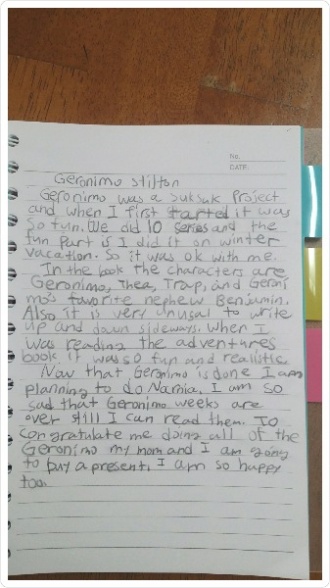 No.
DATE
Geronimo stilton
Geronimo was a suksuk Project
and when I first started it was
so fun. We did 10 series and the
fun part is I did it on winter
vacation. So it was ok with me.
In the book the characters are
Geronimo, Thea, Trap, and Geroni
mo's favorite nephew Benjamin.
Also it is very unusal to write
up and down sideways. When I
was reading the adventures
book it was so fun and realistic.
Now that Geronimo is done I am
planning to do Narnia. I am so
sad that Geronimo weeks are
over still I can read them. To
congratulate me doing all of the
Geronimo my mom and I am going
to buy a present. I am so happy
too.